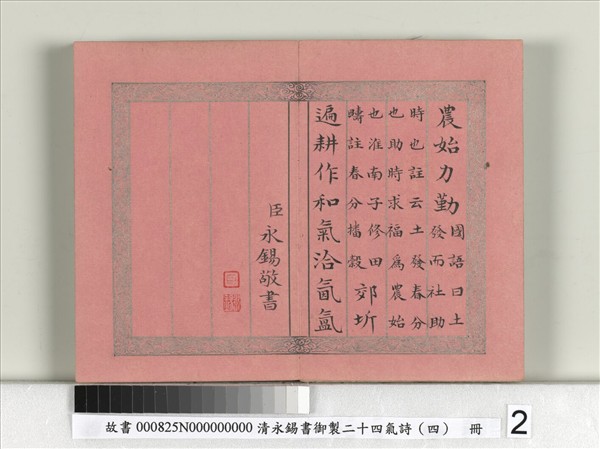 農始力勤國語曰土
發而社助
時也註云土發春分
也助時求福爲農始
也淮南子修田
疇註春分播穀郊圻
遍耕作和氣洽氤氳
臣永錫敬書
故書 000825N000000000 清永錫書御製二十四氣詩（四） 冊
2